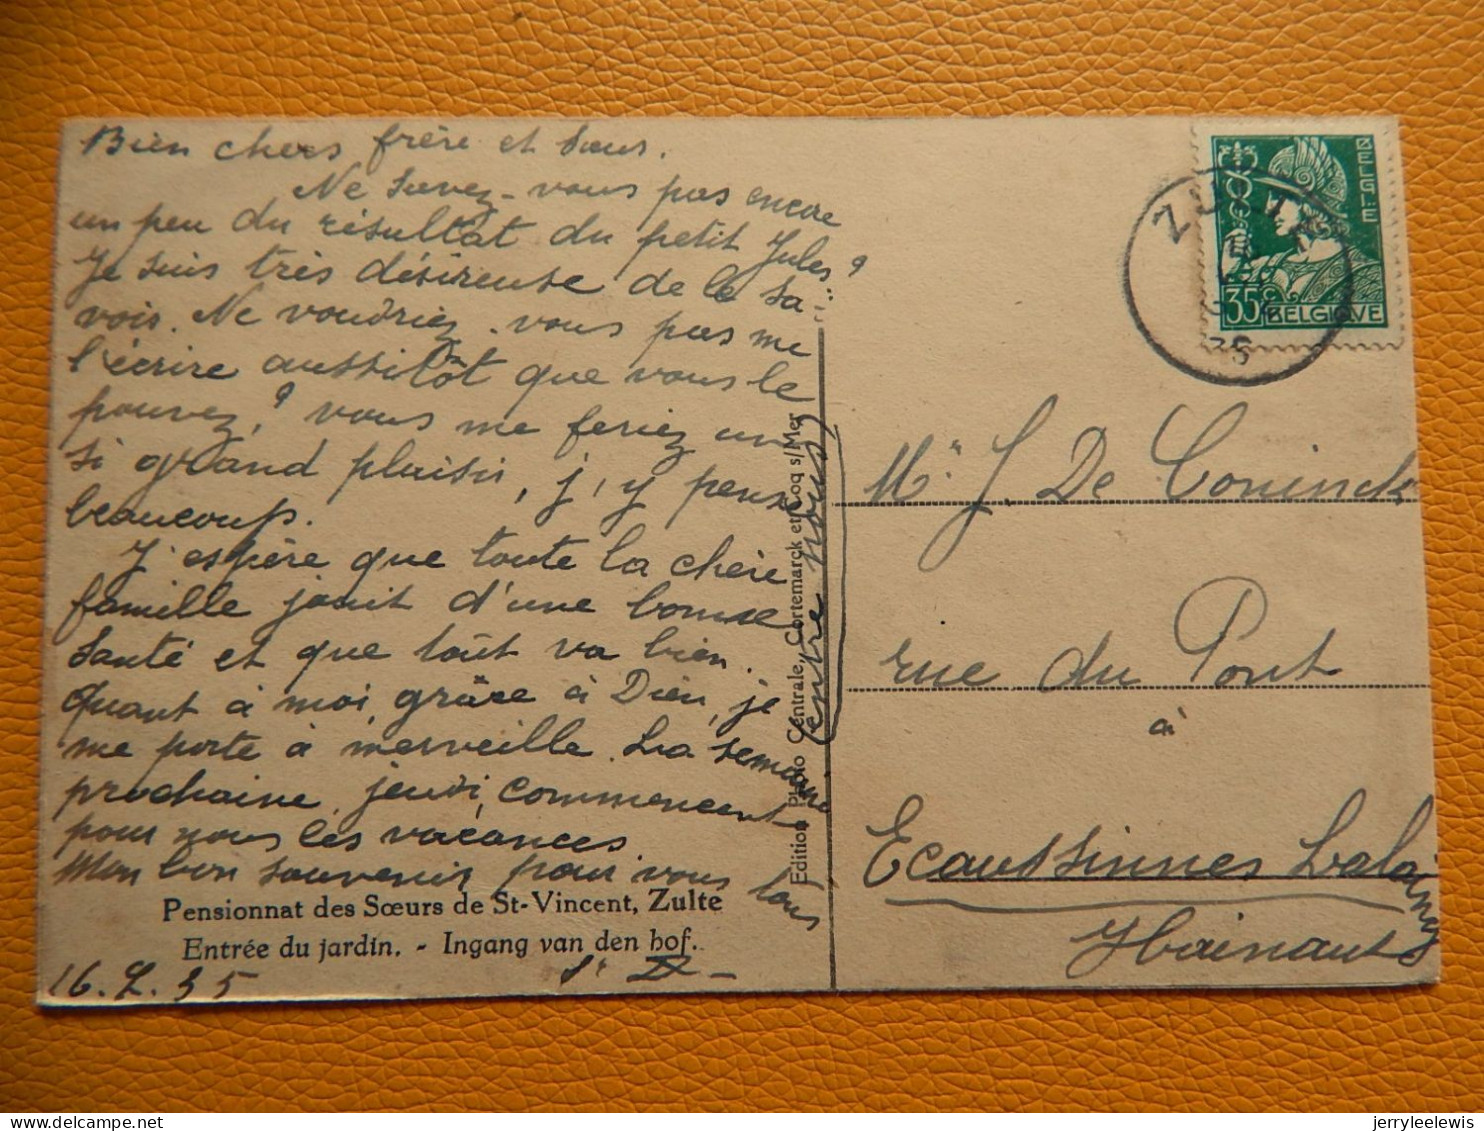 Bien chers frère et sœur.
Ne savez-vous pas encore
un peu du résultat du petit Jules?
Je suis très désireuse de le sa-
voir. Ne voudriez-vous pas me
l'écrire aussitôt que vous le
pouvez? vous me feriez un
si grand plaisir, j'y pense
beaucoup.
J'espère que toute la chère
famille jouit d'une bonne
santé et que tout va bien.
Quant à moi, grâce à Dieu, je
me porte à merveille. La semaine
prochaine, jeudi, commencent
pour nous les vacances.
Mon bon souvenir pour vous tous
(entre nous)
Pensionnat des Sœurs de St-Vincent, Zulte
Entrée du jardin. - Ingang van den hof.
16.7.35
Edition Photo Centrale, Cortemarck et Coq s/Mer
ZULTE
35
BELGIQUE
BELGIE
35c
Mr J. De Coninck
rue du Pont
à
Ecaussinnes Lalaing
Hainaut
jerryleelewis